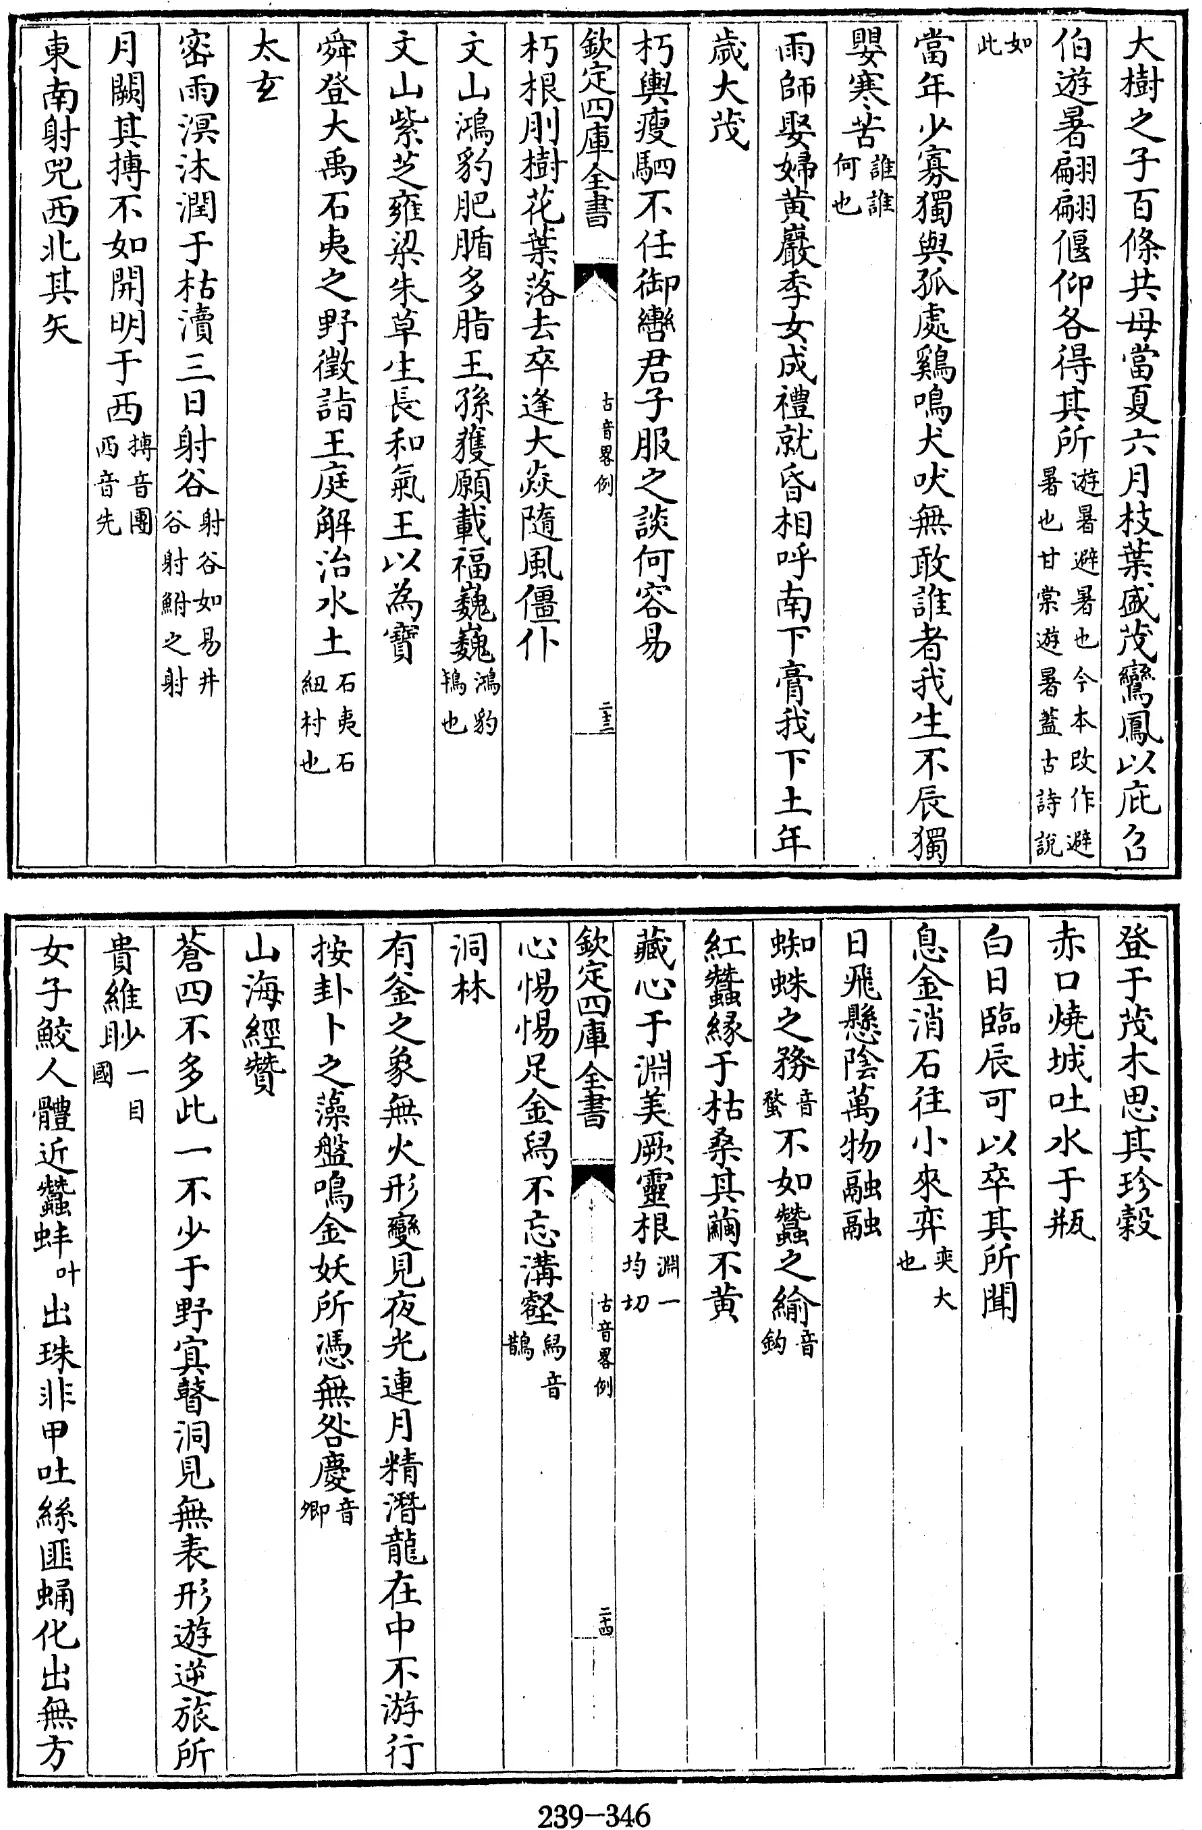 大樹之子百條共母當夏六月枝葉盛茂鸞鳳以庇召
伯遊暑翩翩偃仰各得其所遊暑避暑也今本改作避暑也甘棠遊暑蓋古詩說
如此
當年少寡獨與孤處鷄鳴犬吠無敢誰者我生不辰獨
嬰寒苦誰誰何也
雨師娶婦黄巖季女成禮就昏相呼南下膏我下土年
歲大茂
朽輿瘦駟不任御轡君子服之談何容易
欽定四庫全書 古音畧例 二十三
朽根刖樹花葉落去卒逢大焱隨風僵仆
文山鴻豹肥腯多脂王孫獲願載福巍巍鴻豹鴇也
文山紫芝雍梁朱草生長和氣王以為寶
舜登大禹石夷之野徵詣王庭解治水土石夷石紐村也
太玄
密雨溟沐潤于枯瀆三日射谷射谷如易井谷射鮒之射
月闕其摶不如開明于西摶音團西音先
東南射兕西北其矢
登于茂木思其珍榖
赤口燒城吐水于瓶
白日臨辰可以卒其所聞
息金消石往小來弈奕大也
日飛懸陰萬物融融
蜘蛛之務音蝥不如蠶之緰音鈎
紅蠶緣于枯桑其繭不黄
藏心于淵美厥靈根淵一均切
欽定四庫全書 古音畧例 二十四
心惕惕足金舄不忘溝壑舄音鵲
洞林
有釜之象無火形變見夜光連月精潛龍在中不游行
按卦卜之藻盤鳴金妖所憑無咎慶音卿
山海經贊
蒼四不多此一不少于野㝠瞽洞見無表形遊逆旅所
貴維眇一目國
女子鮫人體近蠶蚌叶出珠非甲吐絲匪蛹化出無方
239-346